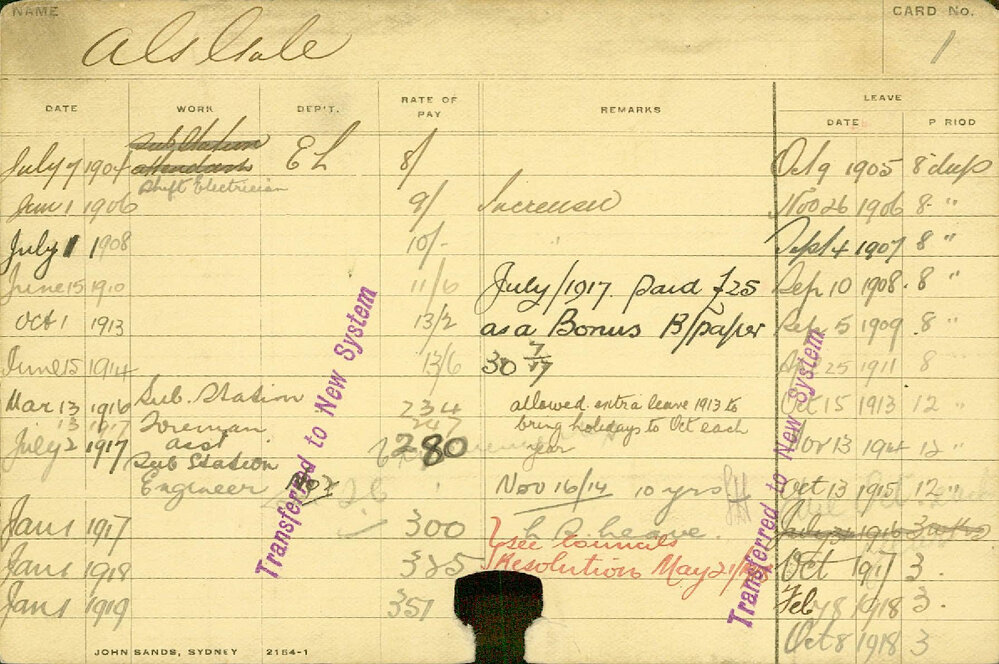 NAME
CARD No.
1
DATE WORK DEP'T. RATE OF PAY REMARKS LEAVE
DATE PERIOD
Sub Station
July 7 1904 attendant E L 8/ Oct 9 1905 8 days
Shift Electrician
Jan 1 1906 9/ Increased Nov 26 1906 8 "
July 1 1908 10/- Sept 4 1907 8 "
June 15 1910 11/6 July/1917. paid £25 Sep 10 1908. 8 "
Oct 1 1913 13/2 as a Bonus B/paper Sep 5 1909 8 "
June 15 1914 13/6 30 7/17 25 1911 8
Mar 13 1916 Sub. Station 234 allowed extra leave 1913 to Oct 15 1913 12 "
13 1917 Foreman 247 bring holidays to Oct each
July 2 1917 asst 280 year Nov 13 1914 12 "
Sub Station
Engineer Nov 16/14 10 yrs Oct 13 1915 12 "
Jan 1 1917 300 leave. July 1916
Jan 1 1918 325 See Councils Oct 1917 3.
Resolution May 21/
Jan 1 1919 351 Feb 8 1918 3.
Oct 8 1918 3
Transferred to New System
Transferred to New System
JOHN SANDS, SYDNEY 2154-1